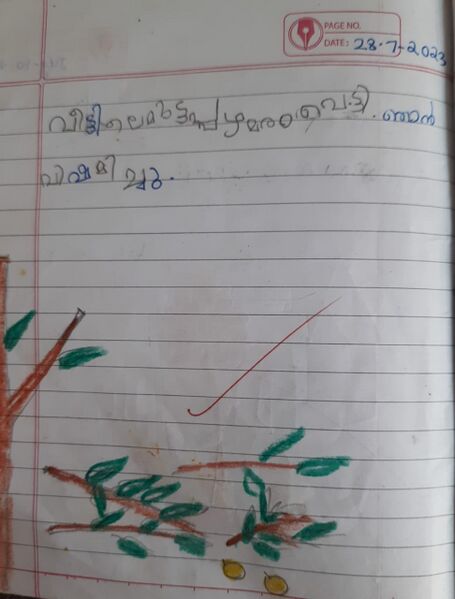 PAGE NO.
DATE: 28-7-2023
വീട്ടിലെമുട്ടപ്പഴമരംവെട്ടി. ഞാൻ
വിഷമിച്ചു.